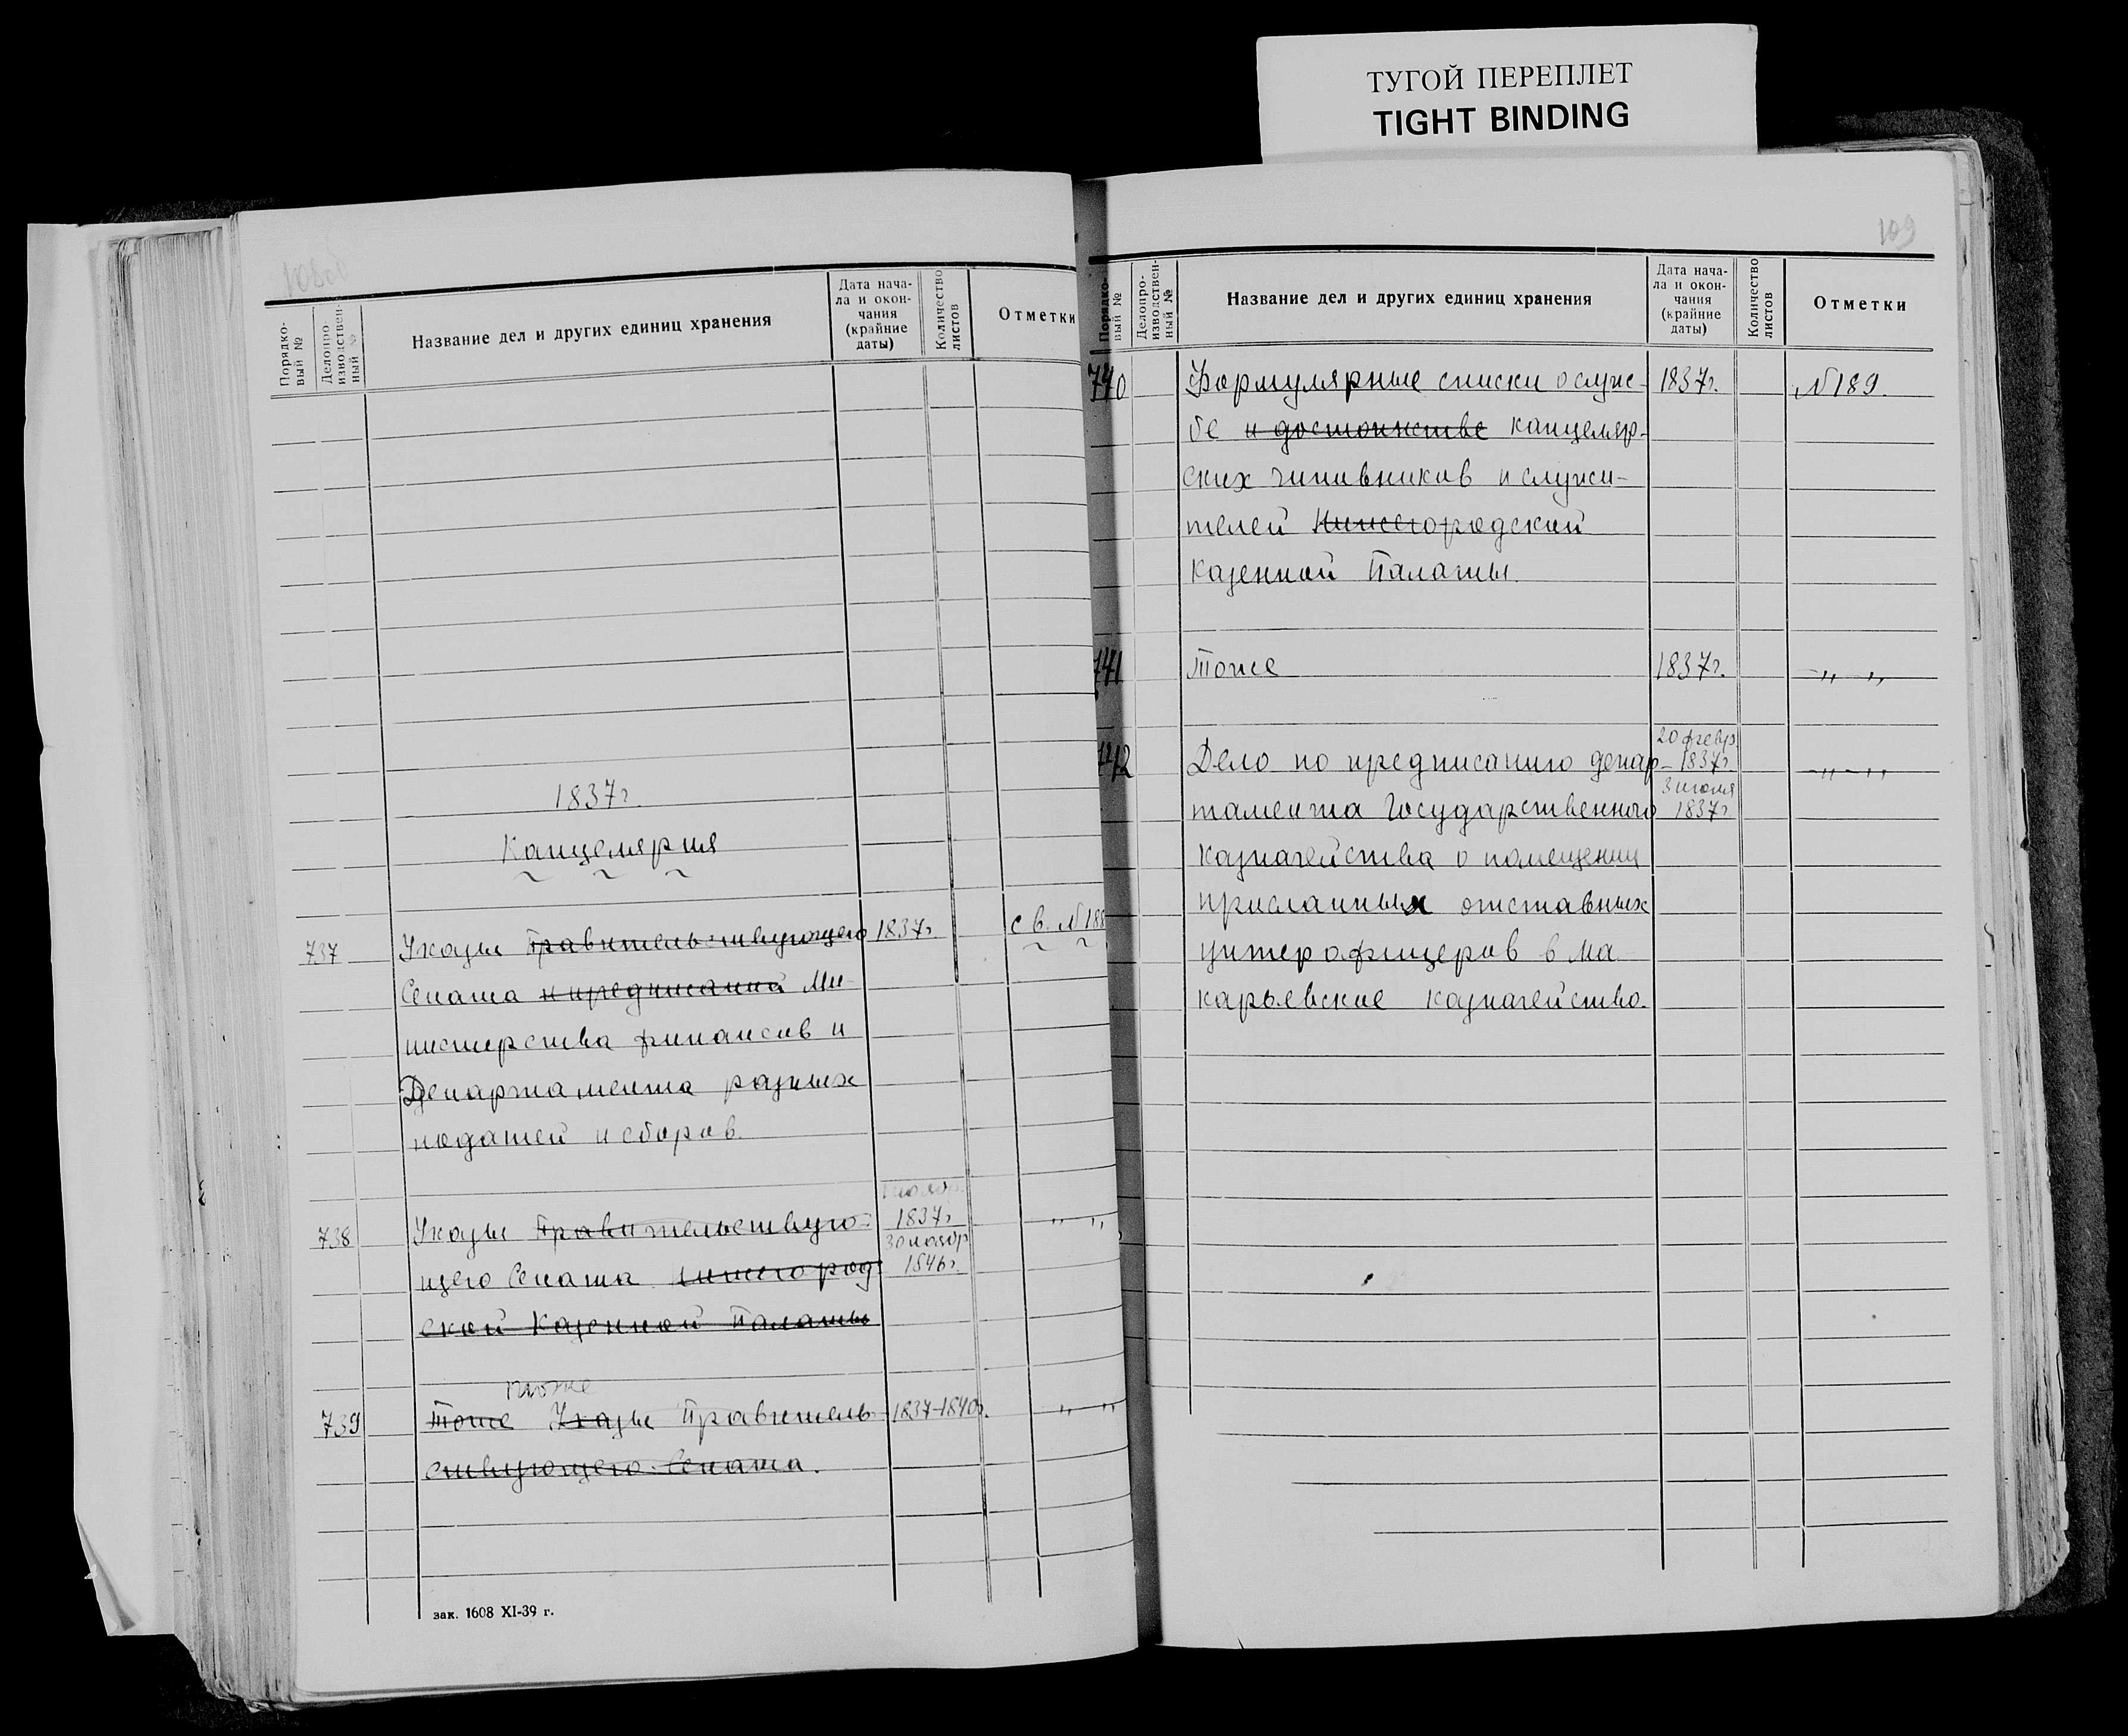 ТУГОЙ ПЕРЕПЛЕТ
TIGHT BINDING
108об
Порядко-
вый №
Делопро-
изводствен-
ный №
Название дел и других единиц хранения
Дата нача-
ла и окон-
чания
(крайние
даты)
Количество
листов
Отметки
1837г.
Канцелярия
737 Указы Правительствующего 1837г. св. №188
Сената и предписаний Ми-
нистерства финансов и
Департамента разных
податей и сборов.
738 Указы Правительствую- 1837г. " "
30 ноябр
щего Сената Нижегород- 1846г.
ской Казенной Палаты
тоже
739 Тоже Указы Правитель- 1837-1840г. " "
ствующего Сената.
зак. 1608 XI-39 г.
109
Порядко-
вый №
Делопро-
изводствен-
ный №
Название дел и других единиц хранения
Дата нача-
ла и окон-
чания
(крайние
даты)
Количество
листов
Отметки
740 Формулярные списки о служ- 1837г. №189.
бе и достоинстве канцеляр-
ских чиновников и служи-
телей Нижегородской
Казенной Палаты.
741 Тоже 1837г. -"-"-
20 февр.
742 Дело по предписанию депар- 1837г. -"-"-
3 июля
тамента Государственного 1837г
казначейства о помещении
присланных отставных
унтерофицеров в Ма-
карьевское казначейство.